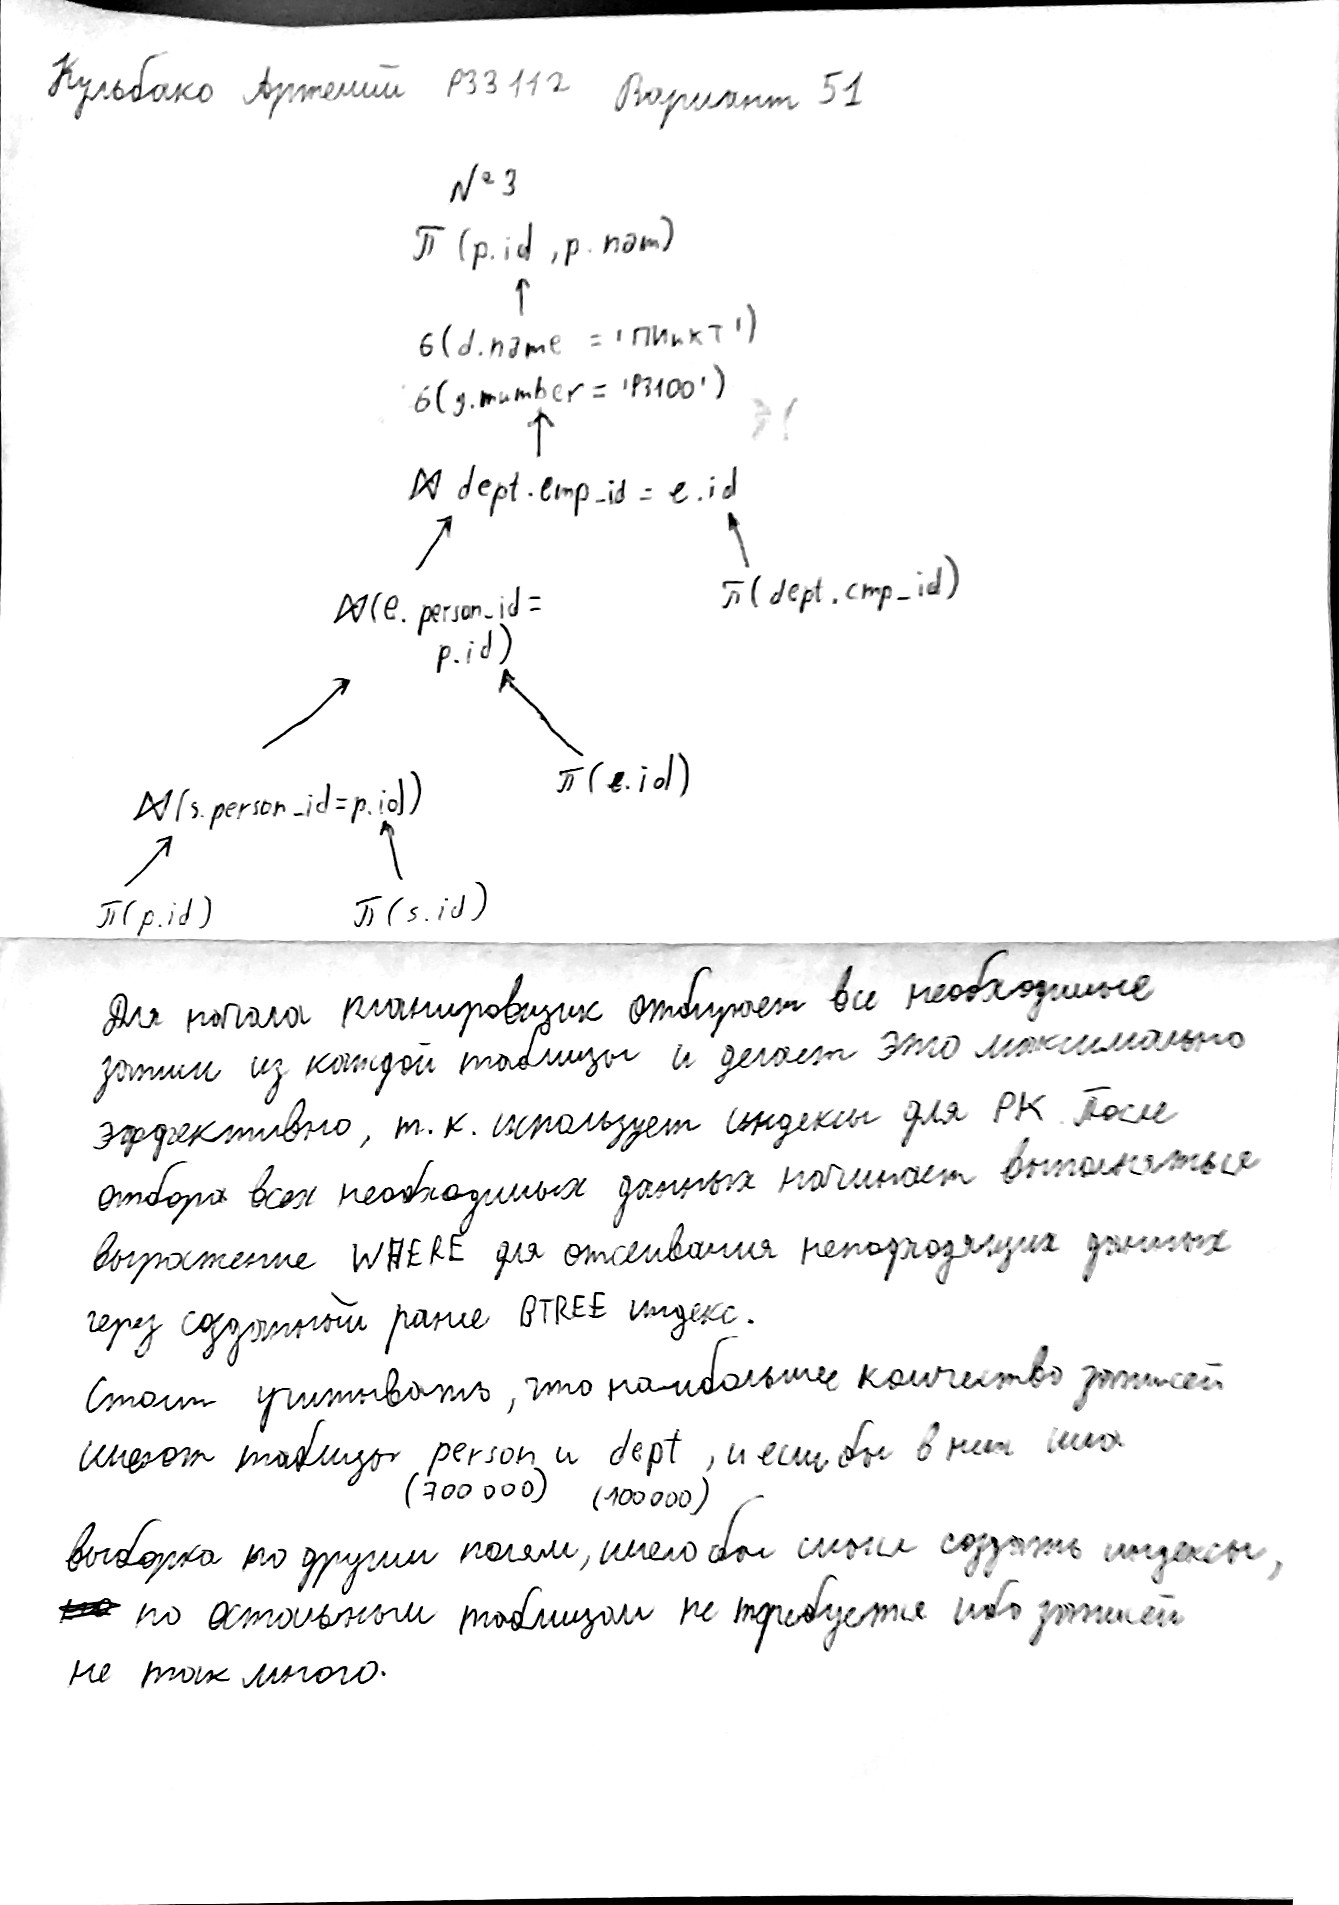 Кульбако Артемий P33112 Вариант 51
№3
π (p.id, p.nam)
б(d.name = 'ПИиКТ')
б(g.number = 'P3100')
⋈ dept.emp_id = e.id
⋈(e.person_id =
p.id)
π(dept.emp_id)
⋈(s.person_id=p.id)
π(e.id)
π(p.id)
π(s.id)
Для начала планировщик отбирает все необходимые
записи из каждой таблицы и делает это максимально
эффективно, т.к. использует индексы для PK. После
отбора всех необходимых данных начинает выполняться
выражение WHERE для отсеивания неподходящих данных
через созданный ранее BTREE индекс.
Стоит учитывать, что наибольшее количество записей
имеют таблицы person и dept, и если бы в них шла
(700 000) (100000)
выборка по другим полям, имело бы смысл создать индексы,
по остальным таблицам не требуется ибо записей
не так много.